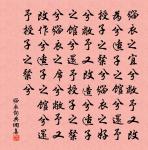 緇衣之宜兮敝予又改
為兮適子之館兮還予
授子之粲兮緇衣之好
兮敝予又改造兮適子
之館兮還予授子之粲
兮緇衣之蓆兮敝予又
改作兮適子之館兮還
予授子之粲兮
緇衣